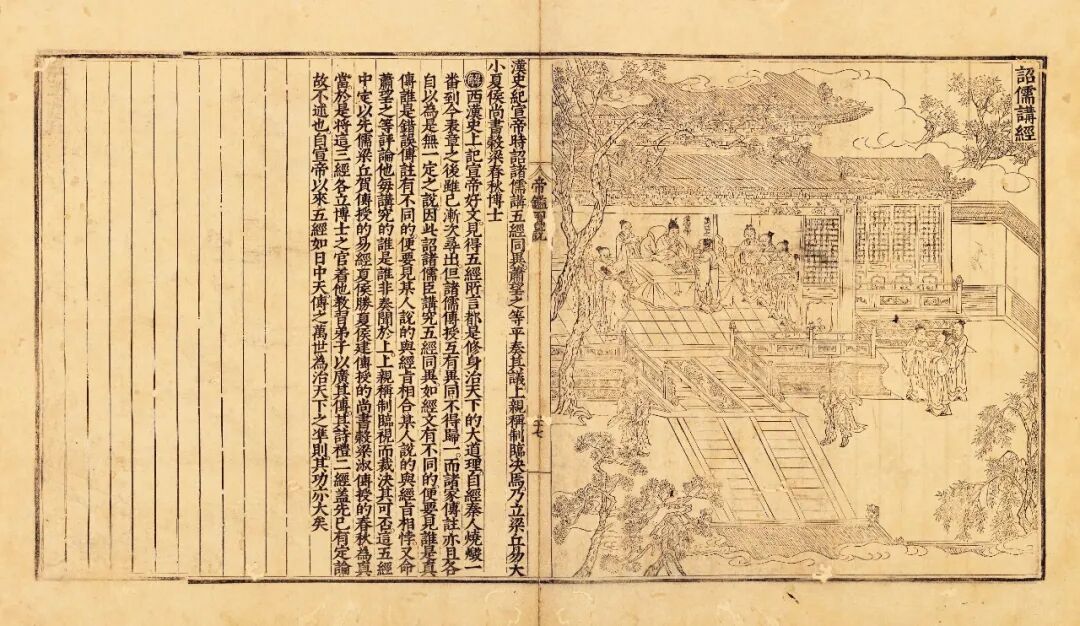 詔儒講經
帝鑑圖說
漢史紀宣帝時詔諸儒講五經同異蕭望之等平奏其議上親稱制臨決焉乃立梁丘易大
小夏侯尚書穀梁春秋博士
解西漢史上記宣帝好文見得五經所言都是修身治天下的大道理自經秦人燒燬一
畨到今表章之後雖已漸次尋出但諸儒傳授互有異同不得歸一而諸家傳註亦且各
自以為是無一定之說因此詔諸儒臣講究五經同異如經文有不同的便要見誰是真
傳誰是錯誤傳註有不同的便要見某人說的與經旨相合某人說的與經旨相悖又命
蕭望之等評論他每講究的誰是誰非奏聞於上上親稱制臨視而裁決其可否這五經
中定以先儒梁丘賀傳授的易經夏侯勝夏侯建傳授的尚書穀梁淑傳授的春秋為真
當於是將這三經各立博士之官着他教習弟子以廣其傳其詩禮二經蓋先已有定論
故不述也自宣帝以來五經如日中天傳之萬世為治天下之準則其功亦大矣